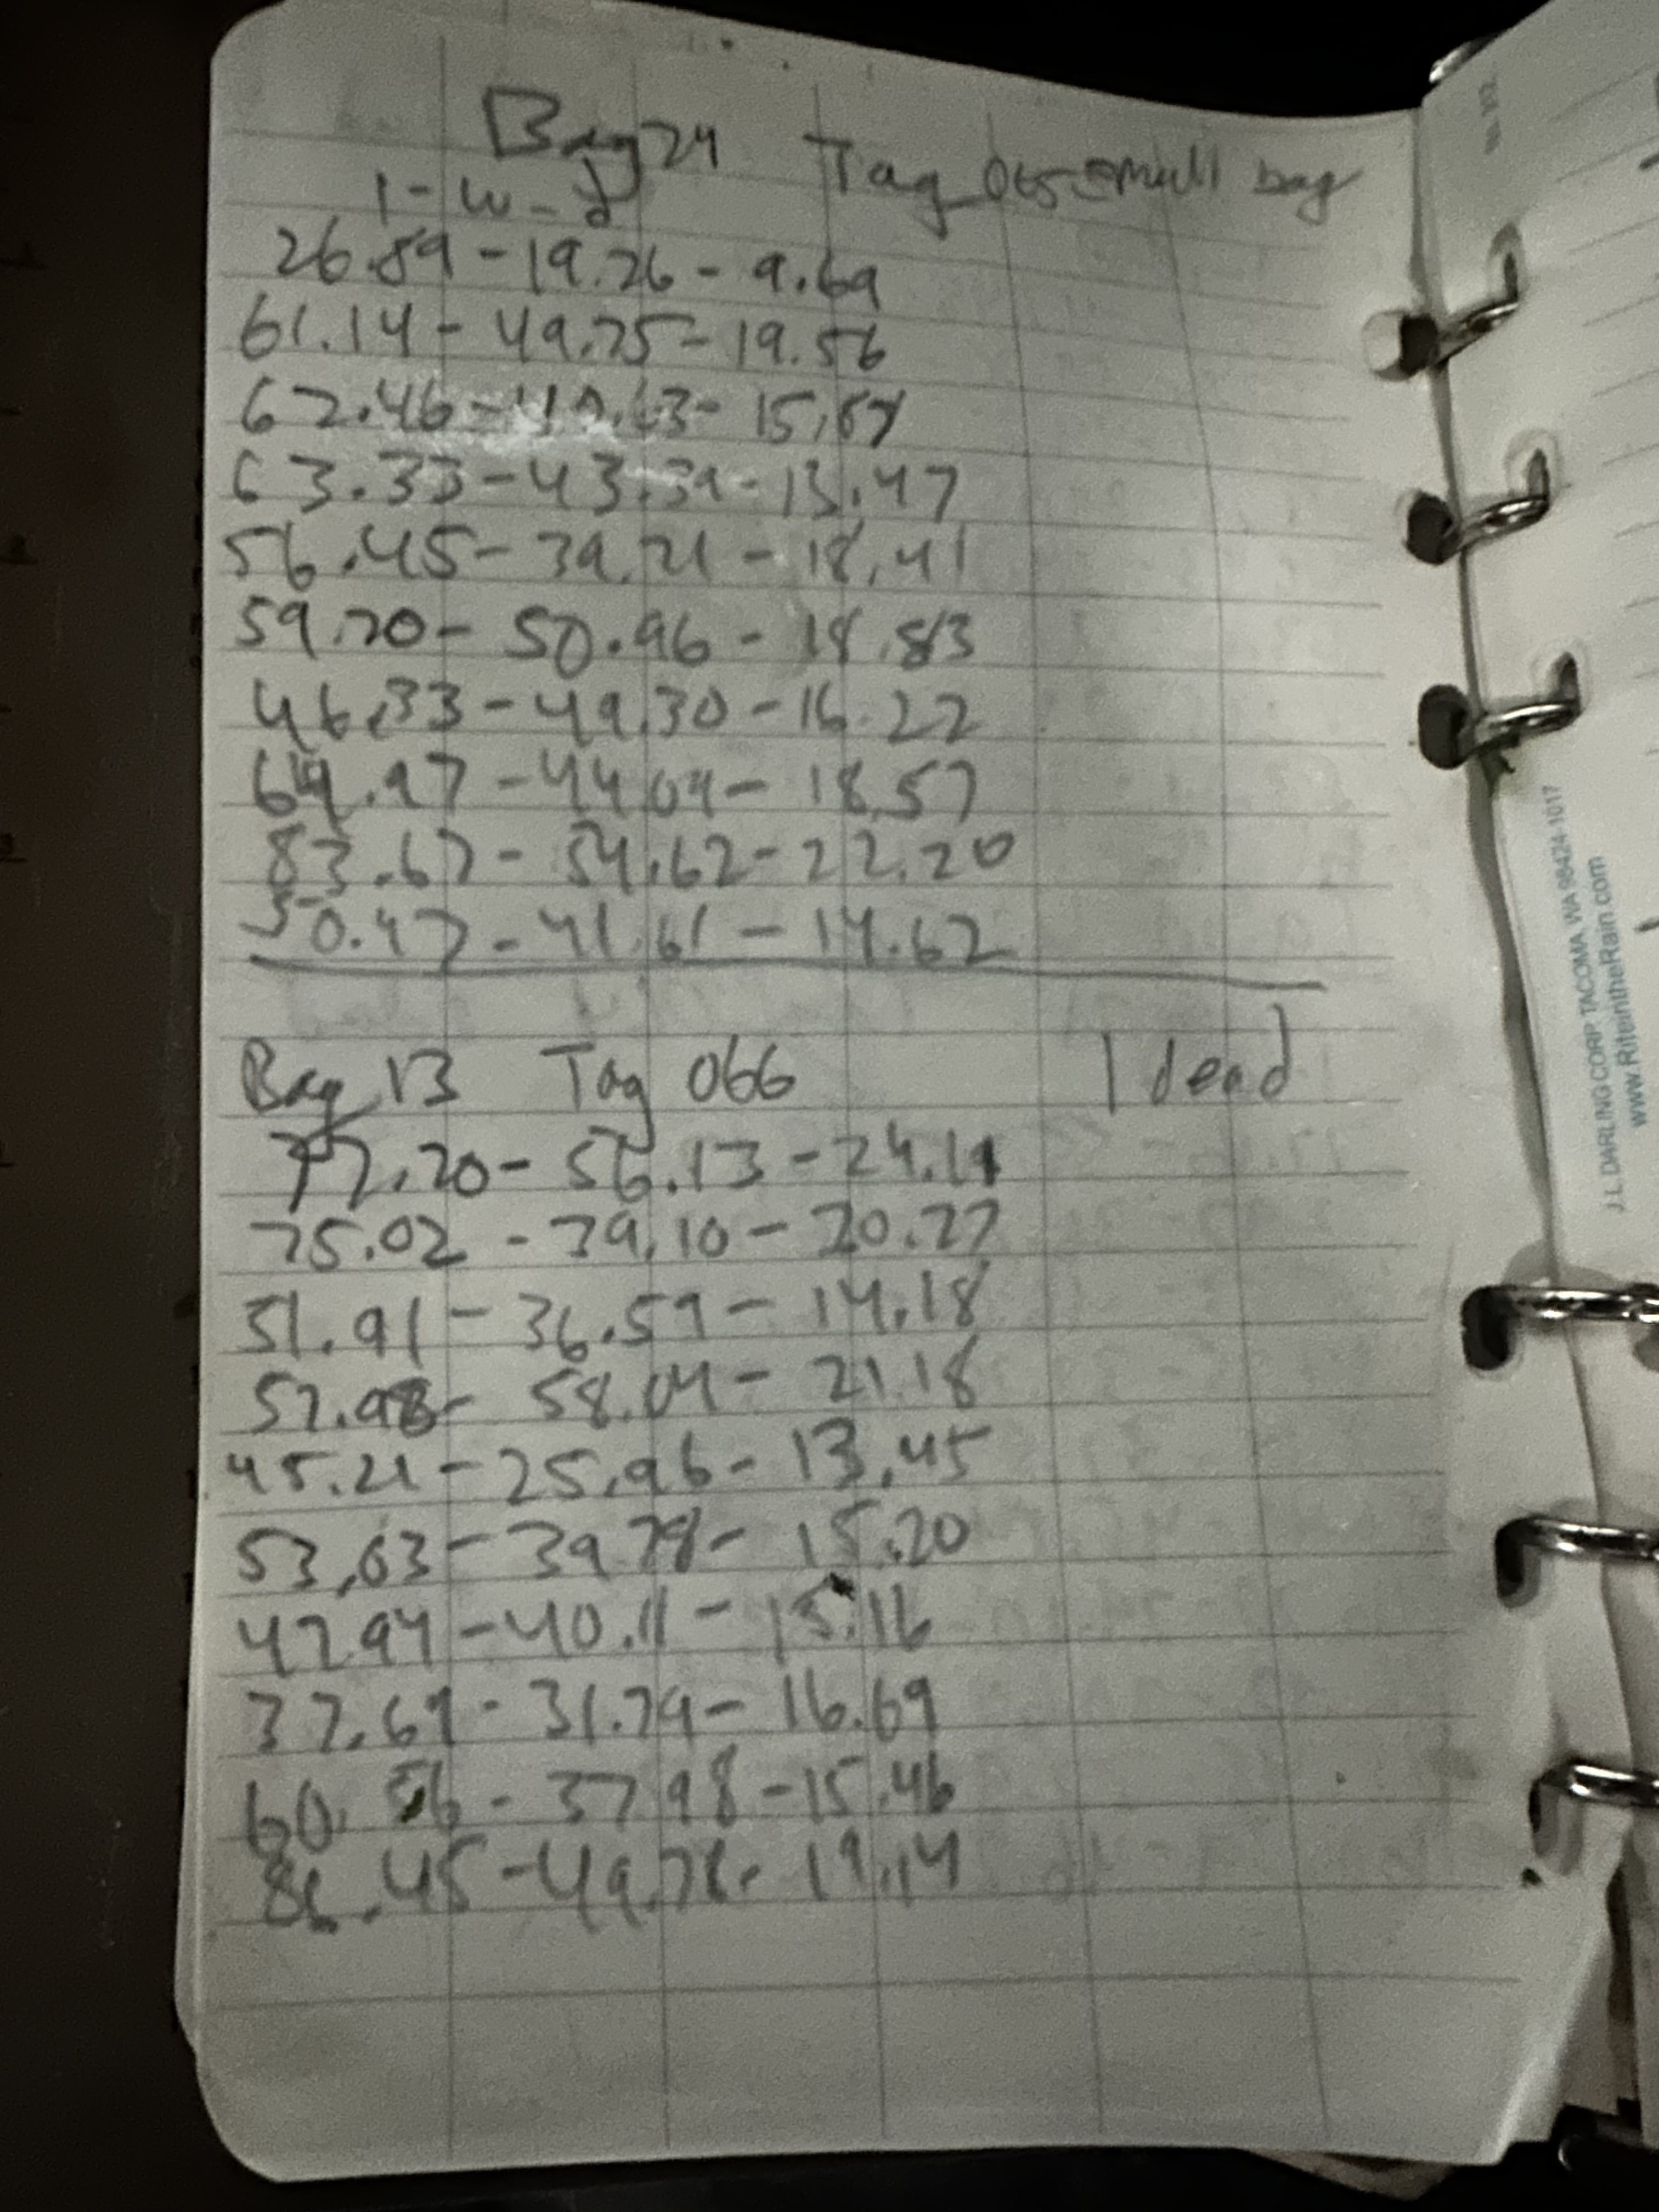 Bag 24 Tag 065 small bag
l - w - d
26.89 - 19.26 - 9.69
61.14 - 49.75 - 19.56
62.46 - 15.67
63.33 - 43.39 - 13.47
56.45 - 39.21 - 18.41
59.70 - 50.96 - 18.83
46.33 - 49.30 - 16.22
64.97 - 44.04 - 18.57
83.67 - 54.62 - 22.20
50.47 - 41.61 - 14.62
Bag 13 Tag 066 1 dead
77.20 - 56.13 - 24.11
75.02 - 39.10 - 20.27
51.91 - 36.59 - 14.18
57.98 - 58.04 - 21.18
45.21 - 25.96 - 13.45
53.63 - 39.78 - 15.20
47.94 - 40.11 - 15.16
37.69 - 31.79 - 16.69
60.56 - 37.98 - 15.46
86.45 - 49.78 - 19.14
J.L. DARLING CORP TACOMA, WA 98424-1017
www.RiteintheRain.com